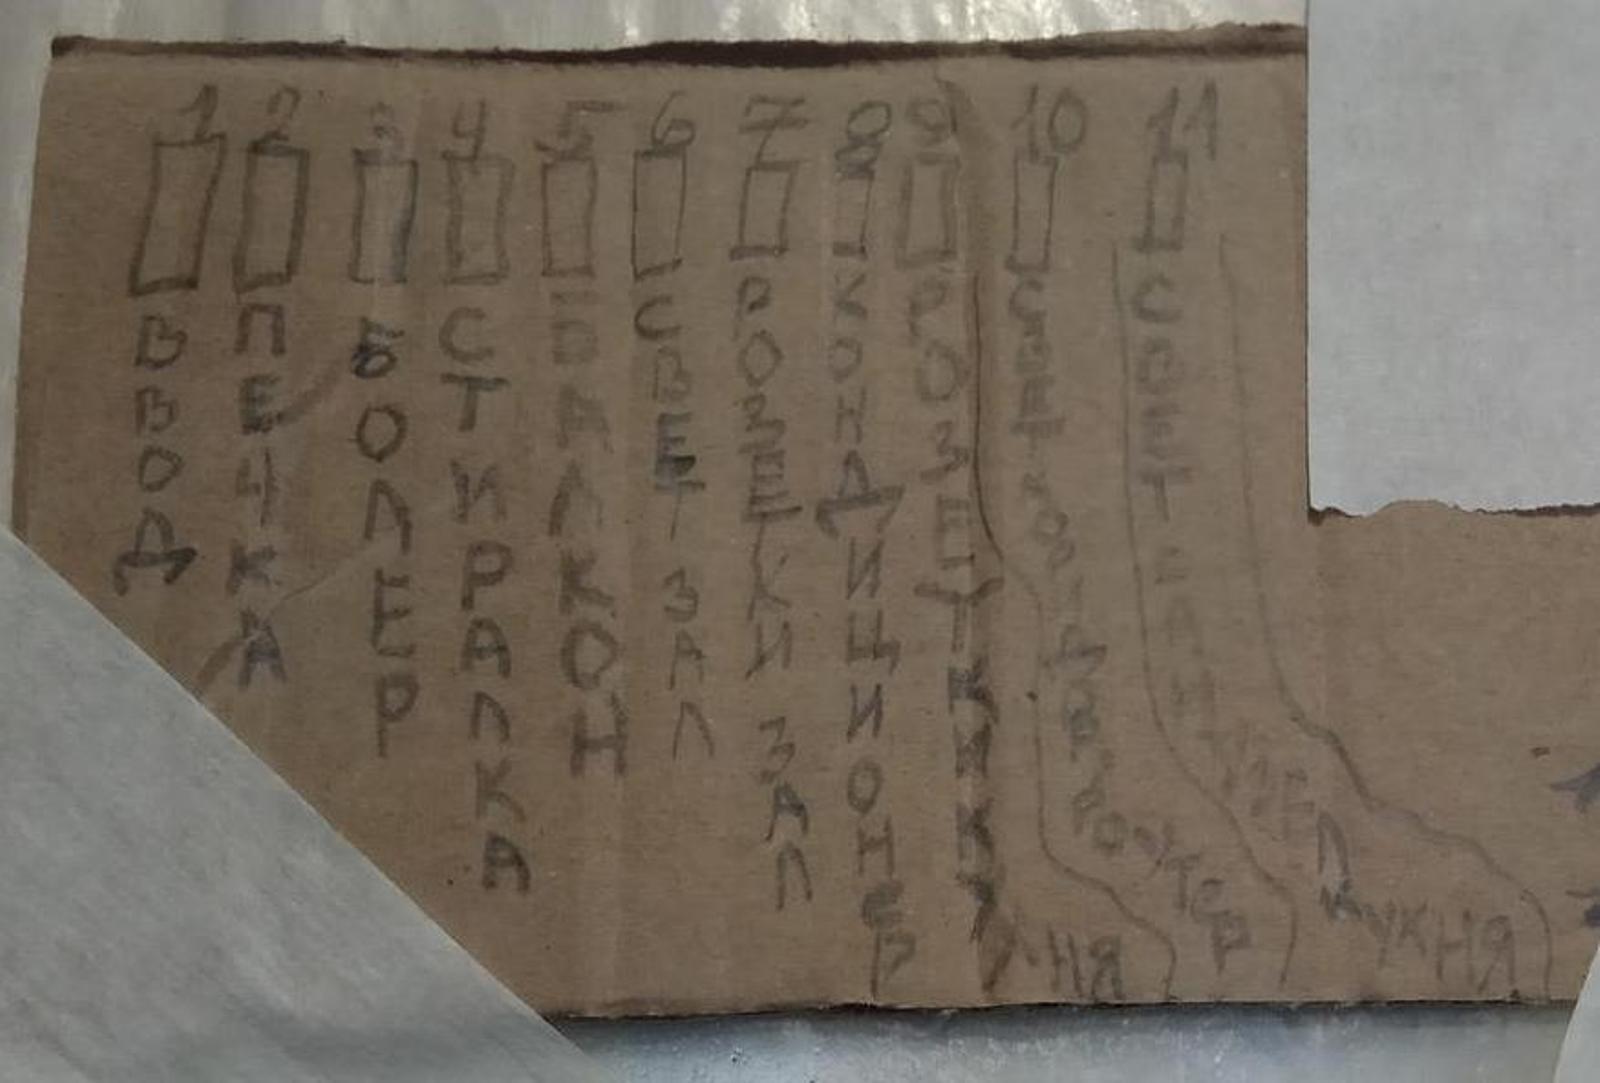 1 2 3 4 5 6 7 8 9 10 11
ВВОД
ПЕЧКА
БОЛЕР
СТИРАЛКА
БАЛКОН
СВЕТ ЗАЛ
РОЗЕТКИ ЗАЛ
КОНДИЦИОНЕР
РОЗЕТКИ
СВЕТ КОРИДОР РОУТЕР
СВЕТ САНУЗЕЛ